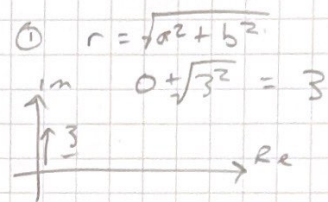 ① r = √a² + b²
Im 0 + √3² = 3
3
Re